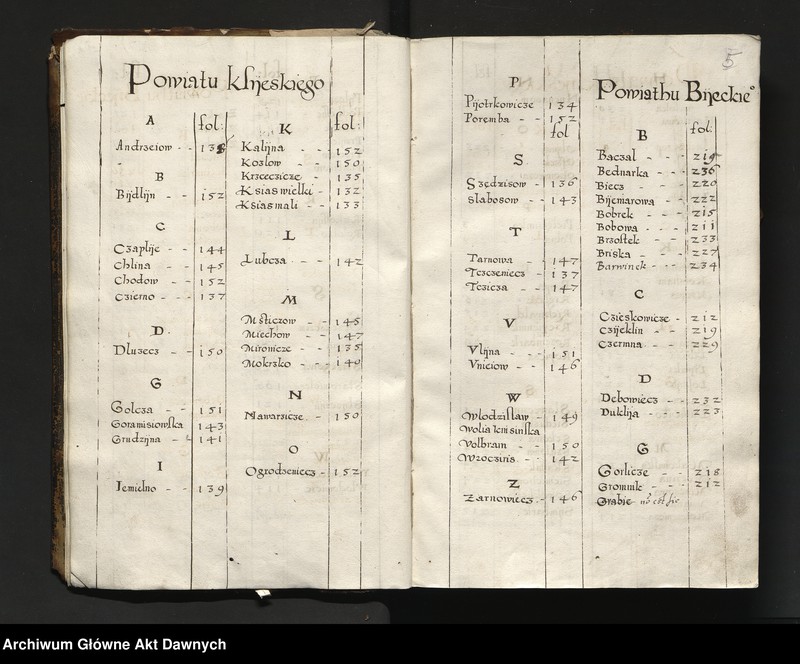 Powiatu kſijeskiego
A
fol:
Andrzeiow - - 138
B
Bijdlijn - - 152
C
Czaplije - - 144
Chlina - - 145
Chodow - - 152
Czierno - - - 137
D
Dluzecz - - 150
G
Golcza - - 151
Goramisiowska 143
Grudzijna - - 141
I
Iemielno - - 139
K
fol:
Kalijna - - 152
Kozlow - - 150
Krzeczicze - - 135
Ksias wielki - 132
Ksias mali - - 133
L
Lubcza - - - 142
M
Msticzow - - 145
Miechow - - 147
Mironicze - - 135
Mokrsko - - - 140
N
Nawarzicze - 150
O
Ogrodzeniecz - 152
5
P
Pijotrkowicze 134
Poremba - - 152
fol
S
Szędzisow - 136
Slabosow - - 143
T
Tarnowa - - 147
Tczczeniecz - 137
Tczicza - - 147
V
Vlijna - - - 151
Vniciow - - 146
W
Wlodzislaw - 149
Wolia
Wolbram - - 150
Wzoczins - - 142
Z
Zarnowiecz - 146
Powiathu Bijeckie°
B
fol:
Baczal - - - 219
Bednarka - - - 236
Biecz - - - 220
Bijeniarowa - - 222
Bobrek - - - 215
Bobowa - - - 211
Brzostek - - 233
Briska - - - 227
Barwinek - - - 234
C
Czieskowicze - 212
Czijeklin - - 219
Czermna - - - 229
D
Debowiecz - - 232
Duklija - - - 223
G
Gorlicze - - 218
Gromnik - - - 212
Grabie
Archiwum Główne Akt Dawnych